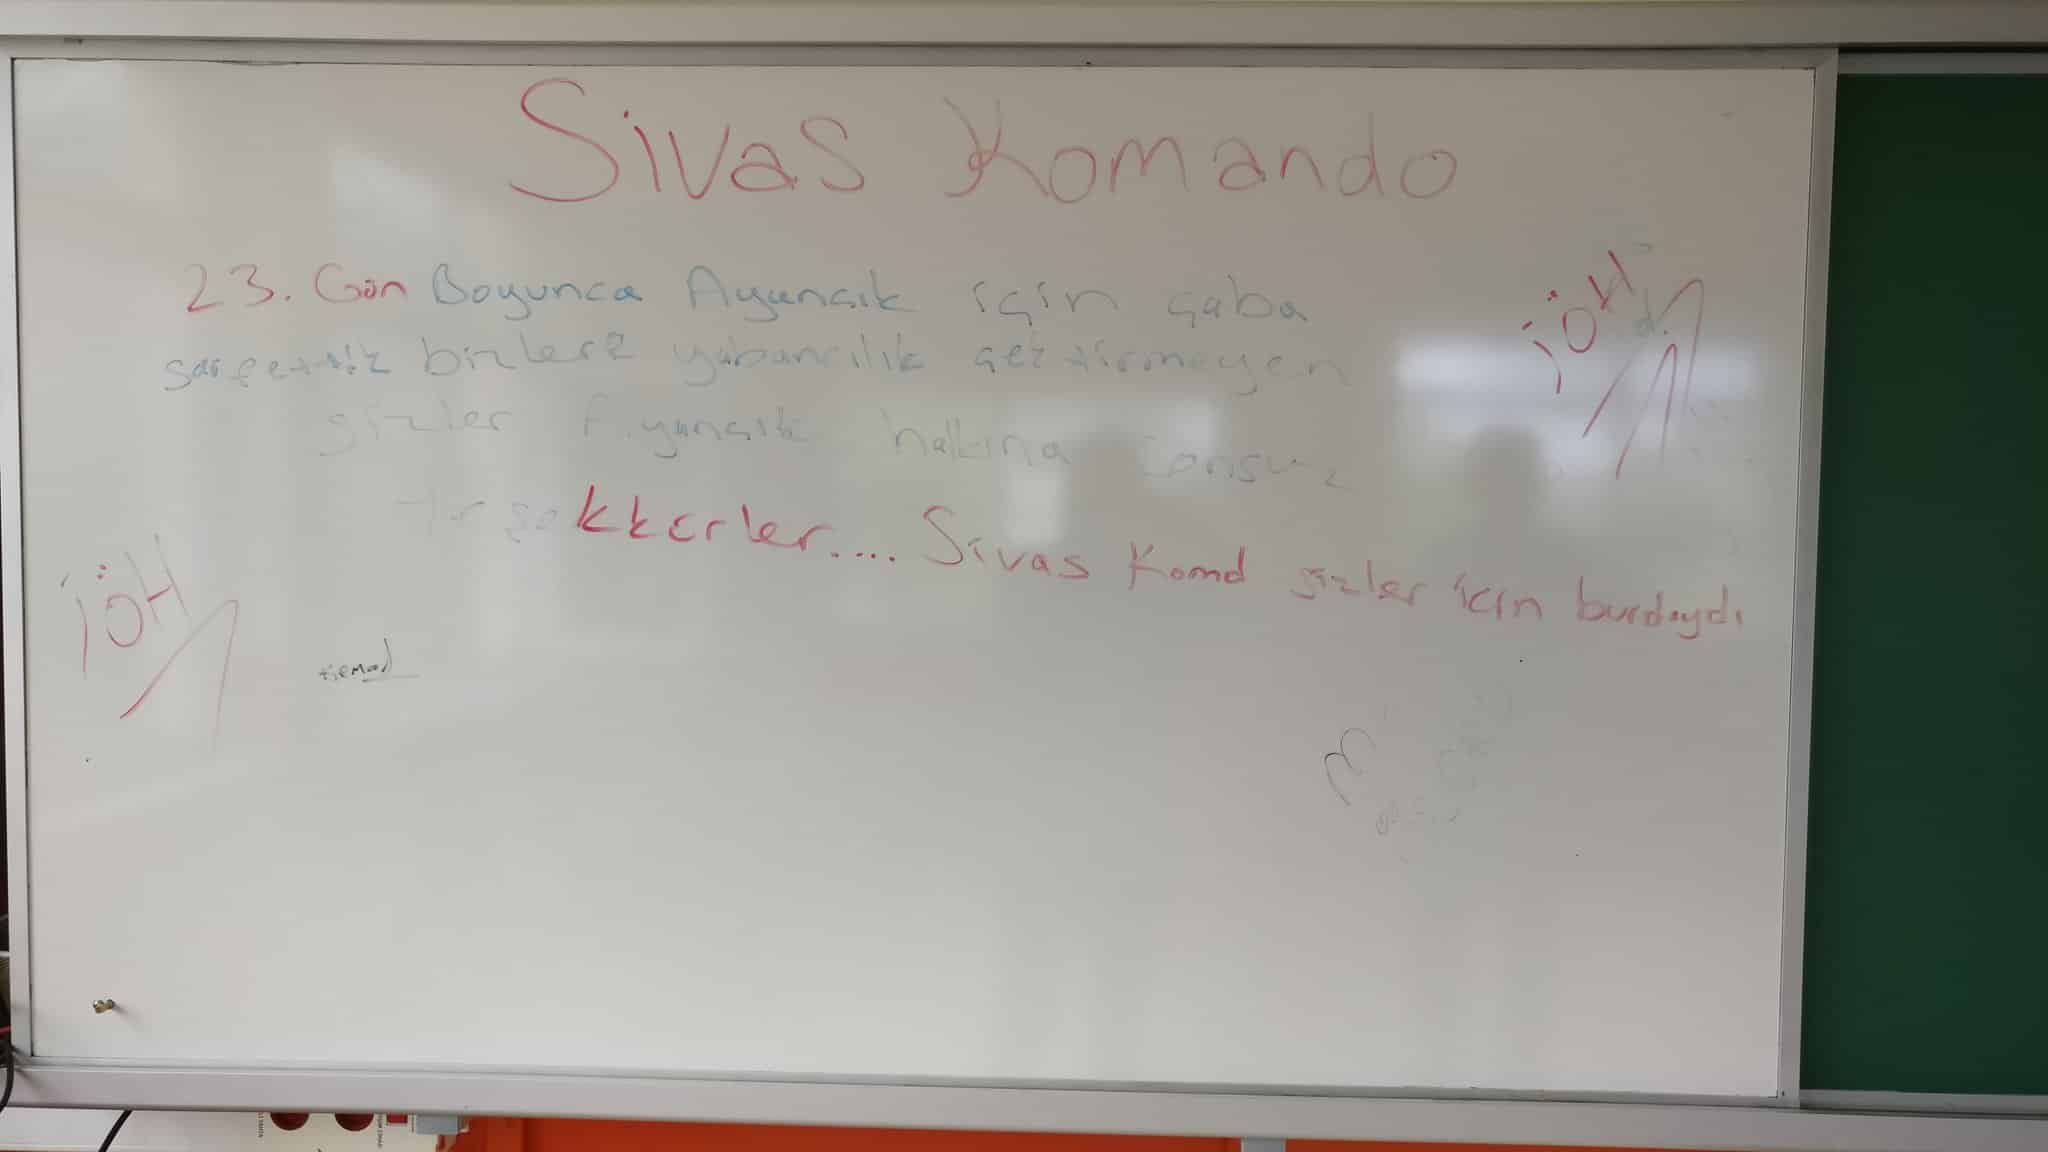 Sivas Komando
23. Gün Boyunca Ayancık için çaba
sarfettik bizlere yabancılık çektirmeyen
sizler Ayancık halkına sonsuz
teşekkkerler.... Sivas Komd sizler için burdaydı
İÖH
İÖH